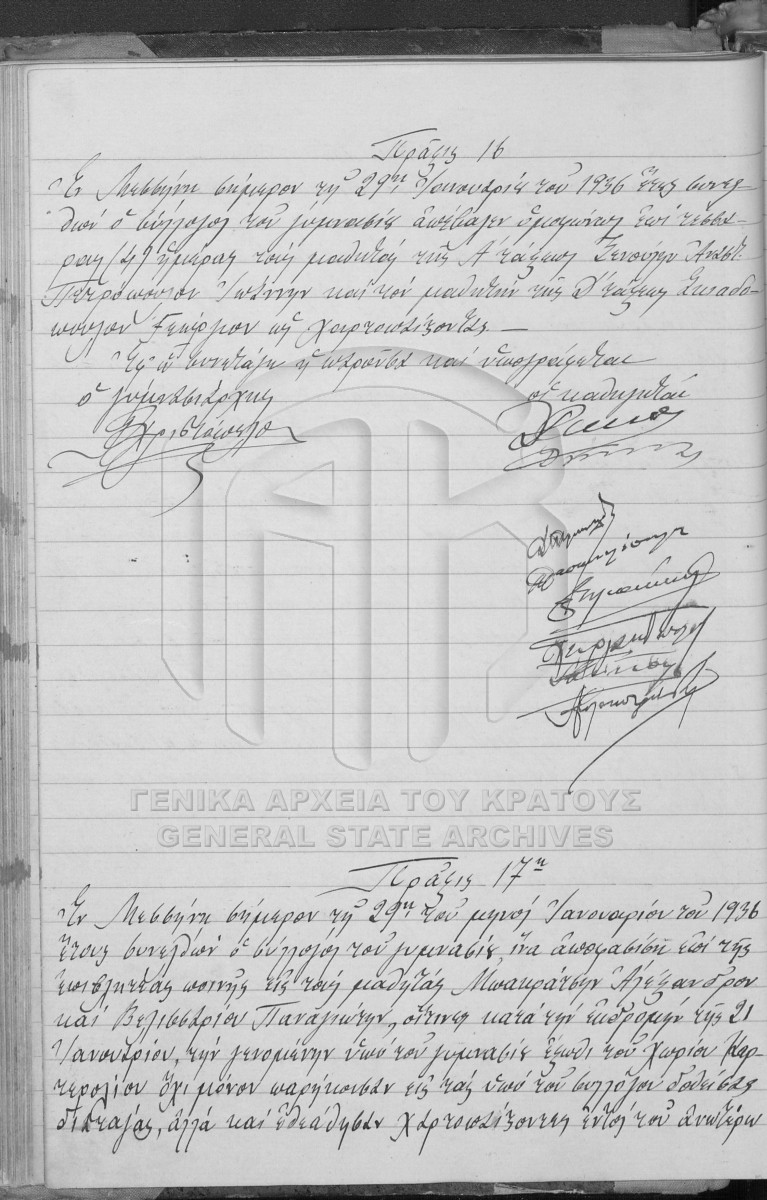 Πρᾶξις 16
Ἐν Μεσσήνῃ σήμερον τῇ 29ῃ Ἰανουαρίου τοῦ 1936 ἔτους συνελ-
θών ὁ σύλλογος τοῦ γυμνασίου ἀπέβαλεν ὁμοφώνως ἐπί τέσσα-
ρας (4) ἡμέρας τούς μαθητάς τῆς Α΄ τάξεως Ἀναστ.
Πετρόπουλον Ἰωάννην καί τόν μαθητήν τῆς τάξεως
Γεώργιον ὡς χαρτοπαίζοντας —
Ἐφ' ᾧ συνετάγη ἡ παροῦσα καί ὑπογράφεται
ὁ γυμνασιάρχης οἱ καθηγηταί
ΓΕΝΙΚΑ ΑΡΧΕΙΑ ΤΟΥ ΚΡΑΤΟΥΣ
GENERAL STATE ARCHIVES
Πρᾶξις 17η
Ἐν Μεσσήνῃ σήμερον τῇ 29ῃ τοῦ μηνός Ἰανουαρίου τοῦ 1936
ἔτους συνελθών ὁ σύλλογος τοῦ γυμνασίου, ἵνα ἀποφασίσῃ ἐπί τῆς
ἐπιβλητέας ποινῆς εἰς τούς μαθητάς Μπακράτσην Ἀλέξανδρον
καί Βελισσαρίου Παναγιώτην, οἵτινες κατά τήν ἐκδρομήν τῆς 21
Ἰανουαρίου, τήν γενομένην ὑπό τοῦ γυμνασίου μέχρι τοῦ χωρίου Καρ-
τερολίου ὄχι μόνον παρήκουσαν εἰς τάς ὑπό τοῦ συλλόγου δοθείσας
διαταγάς, ἀλλά καί ἐθεάθησαν χαρτοπαίζοντες ἐντός τοῦ ἀνωτέρω